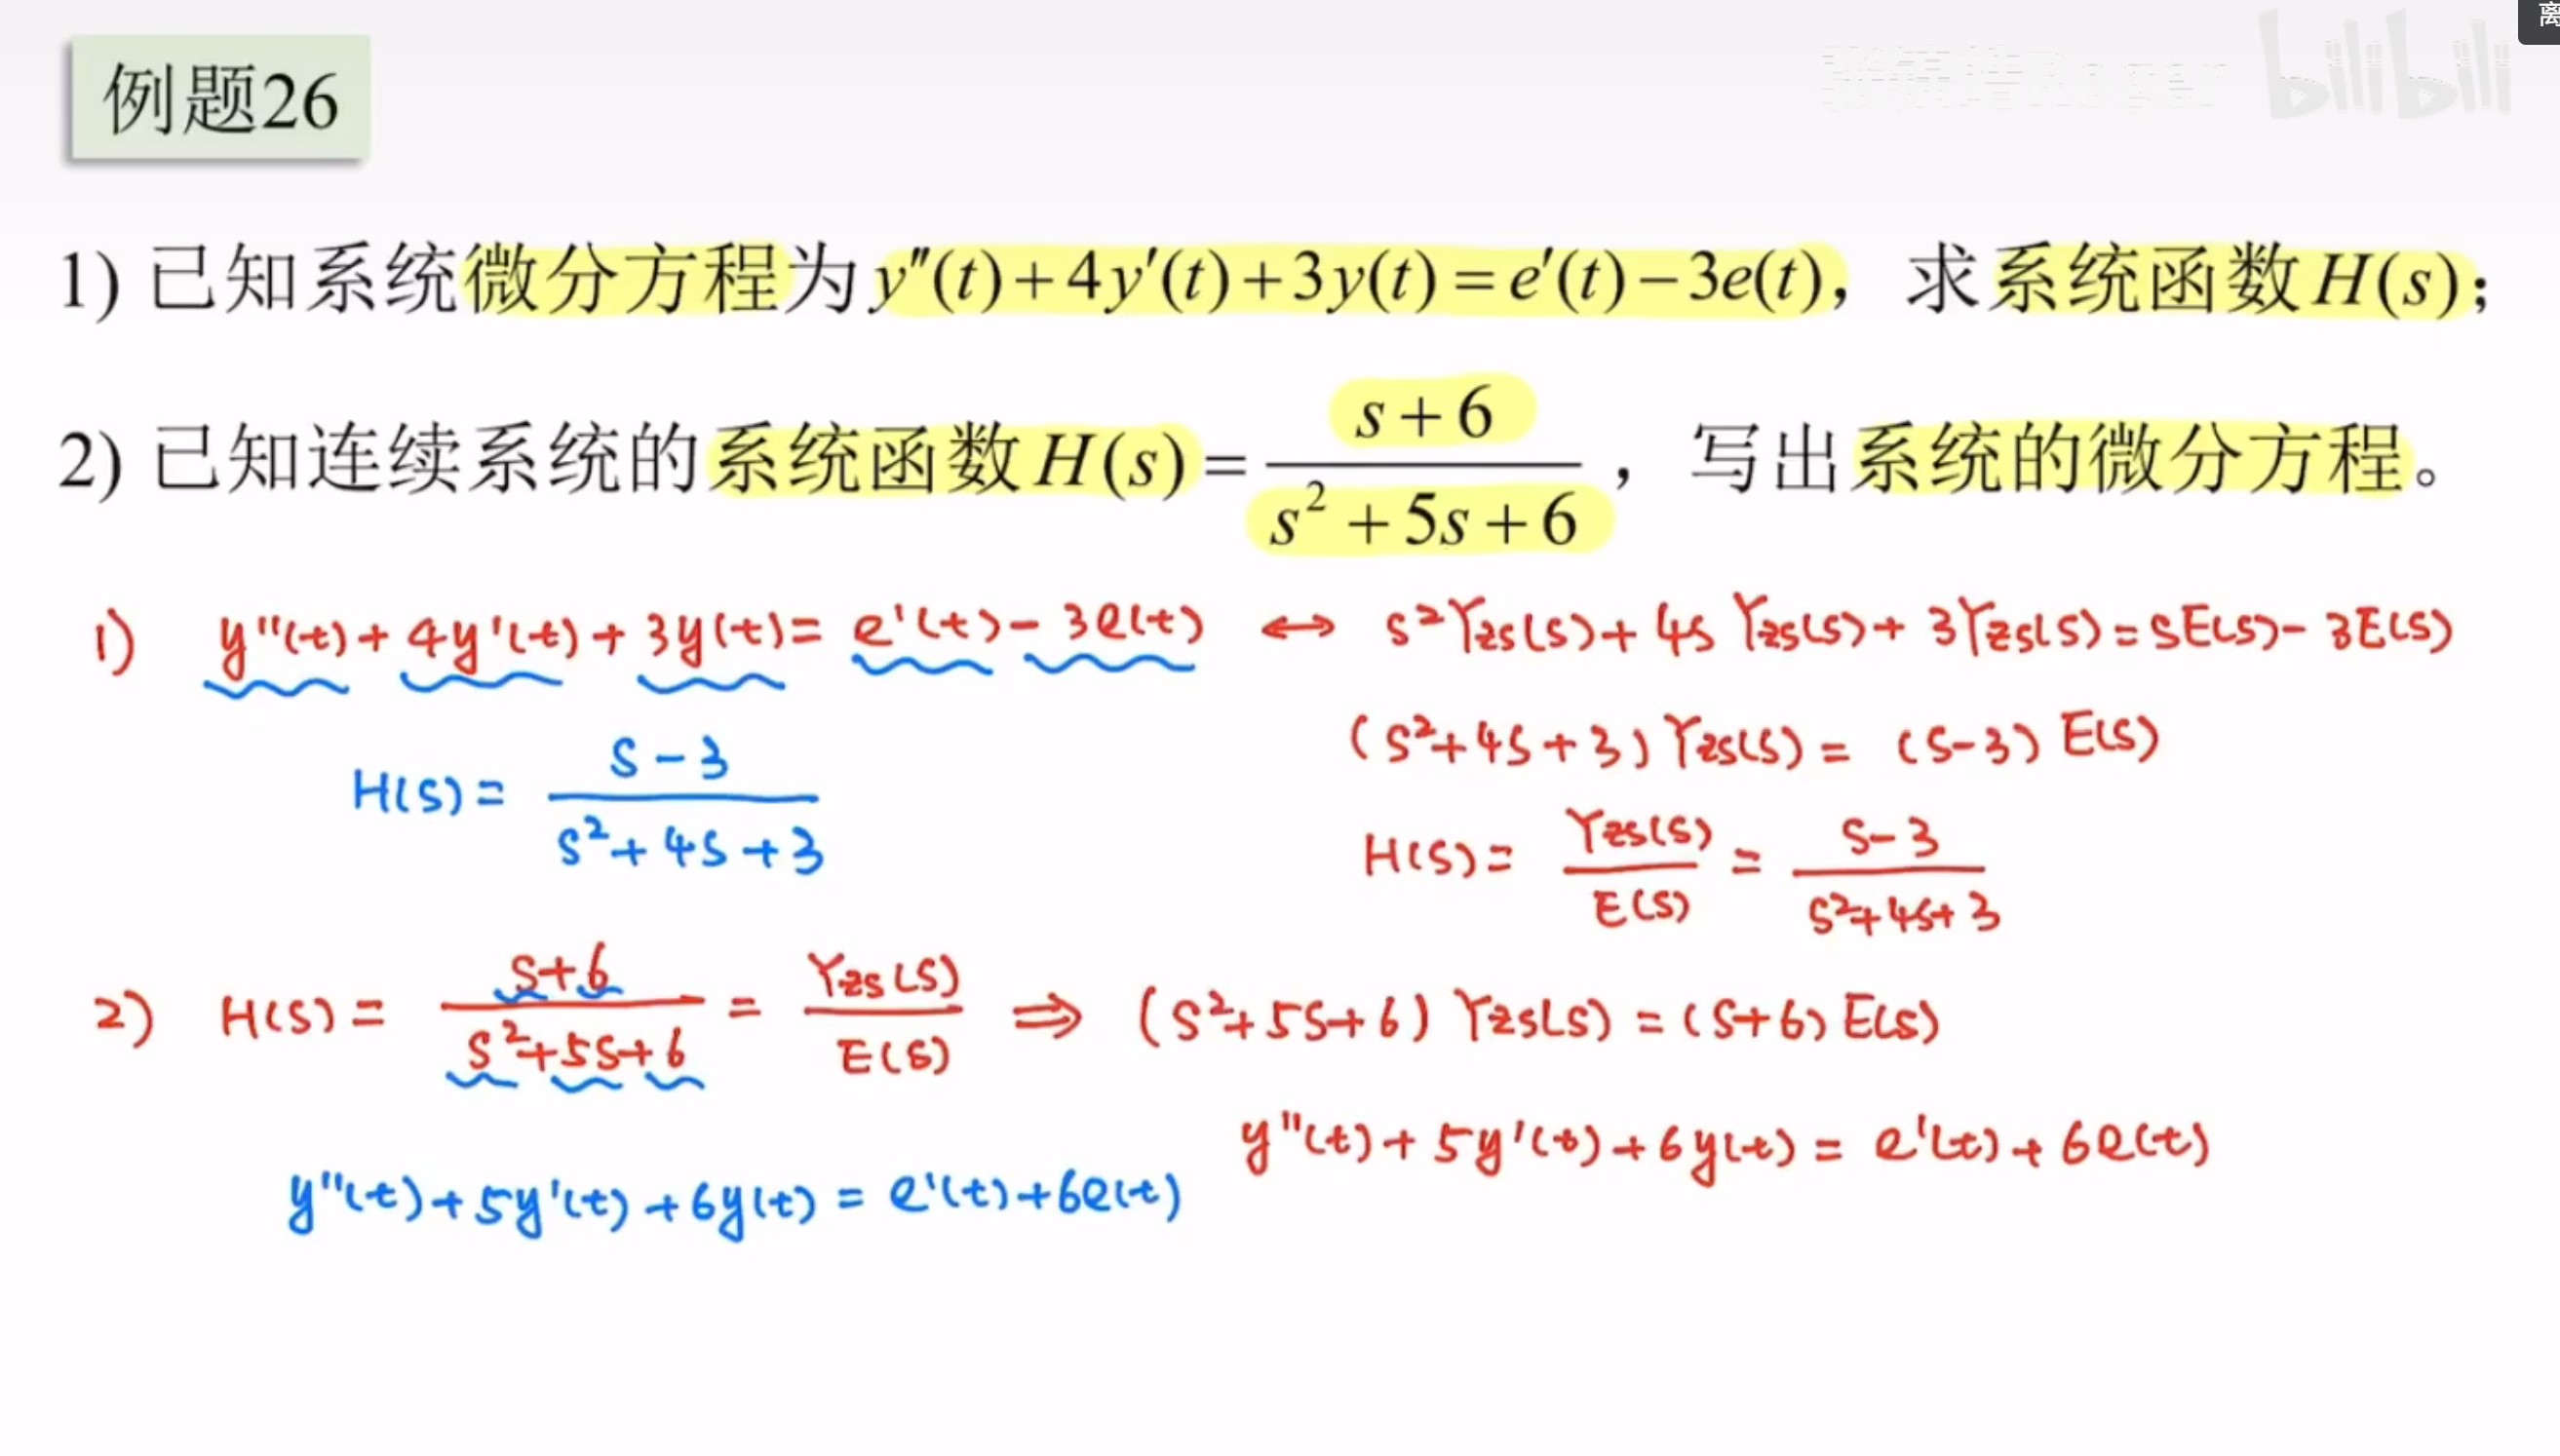 离
bilibili
例题26
1) 已知系统微分方程为 y″(t)+4y′(t)+3y(t)=e′(t)−3e(t)，求系统函数H(s)；
2) 已知连续系统的系统函数H(s)=(s+6)/(s²+5s+6)，写出系统的微分方程。
1) y''(t)+4y'(t)+3y(t)=e'(t)-3e(t) ↔ s²Yzs(s)+4s Yzs(s)+3Yzs(s)=sE(s)-3E(s)
(s²+4s+3)Yzs(s)=(s-3)E(s)
H(s)=(s-3)/(s²+4s+3)
H(s)=Yzs(s)/E(s)=(s-3)/(s²+4s+3)
2) H(s)=(s+6)/(s²+5s+6)=Yzs(s)/E(s) ⇒ (s²+5s+6)Yzs(s)=(s+6)E(s)
y''(t)+5y'(t)+6y(t)=e'(t)+6e(t)
y''(t)+5y'(t)+6y(t)=e'(t)+6e(t)